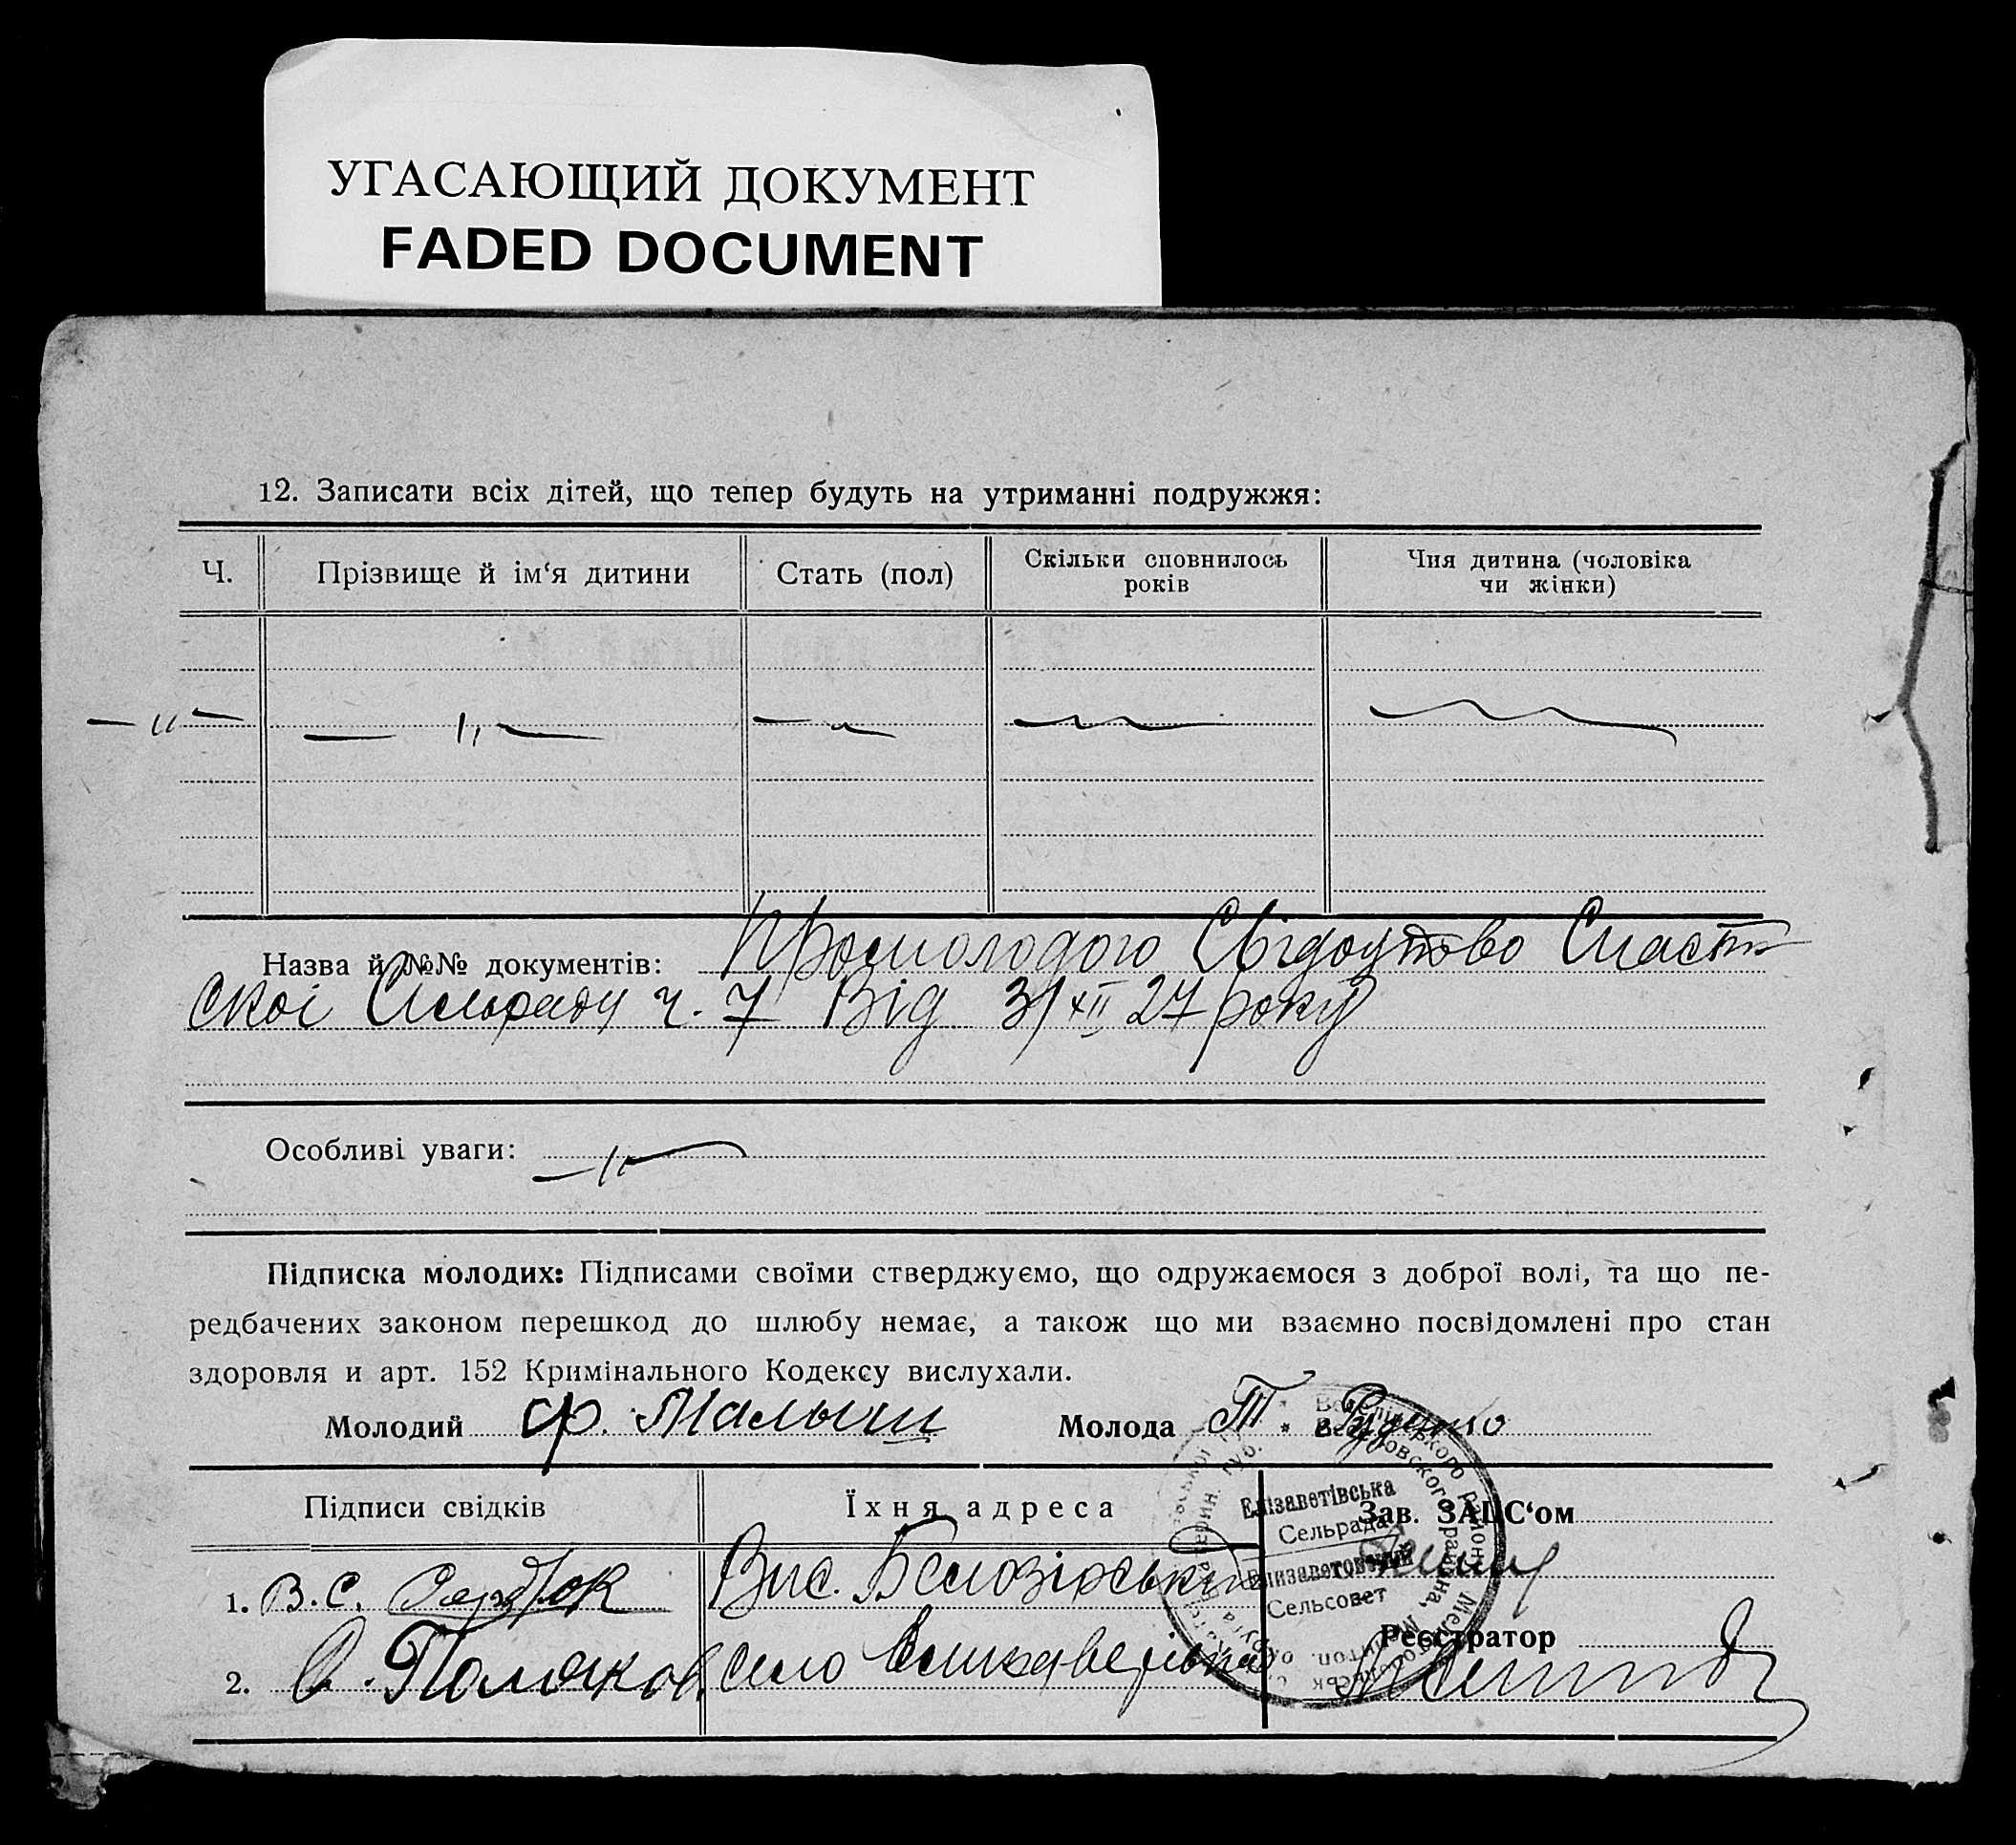 УГАСАЮЩИЙ ДОКУМЕНТ
FADED DOCUMENT
12. Записати всіх дітей, що тепер будуть на утриманні подружжя:
Ч.
Прізвище й ім‘я дитини
Стать (пол)
Скільки сповнилось
років
Чия дитина (чоловіка
чи жінки)
Назва й №№ документів: Промолодого Свідоцтово
ской Сельради ч. 7 Від 3/XII 27 року
Особливі уваги:
Підписка молодих: Підписами своїми стверджуємо, що одружаємося з доброї волі, та що пе-
редбачених законом перешкод до шлюбу немає, а також що ми взаємно посвідомлені про стан
здоровля и арт. 152 Кримінального Кодексу вислухали.
Молодий Ф. Малыш Молода Т.
Підписи свідків
Їхня адреса
Зав. ЗАЦС‘ом
1. В.С. Сердюк Вис. Белозірський
Реєстратор
2. О. Поляков село
Елізаветівська
Сельрада
Елизаветовский
Сельсовет